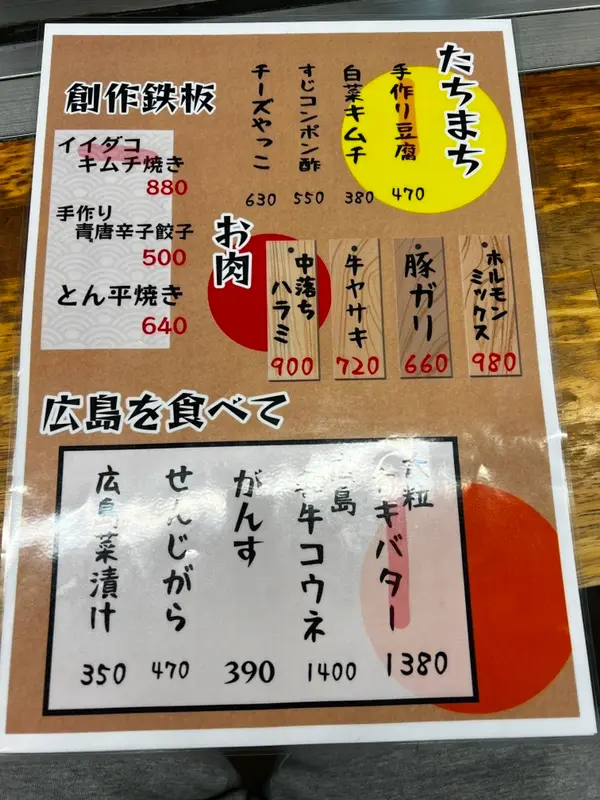 たちまち
手作り豆腐
470
白菜キムチ
380
すじコンポン酢
550
チーズやっこ
630
創作鉄板
イイダコ
キムチ焼き
880
手作り
青唐辛子餃子
500
とん平焼き
640
お肉
ホルモン
ミックス
980
豚ガリ
660
牛ヤサキ
720
中落ち
ハラミ
900
広島を食べて
大粒
キバター
1380
島
牛コウネ
1400
がんす
390
せんじがら
470
広島菜漬け
350